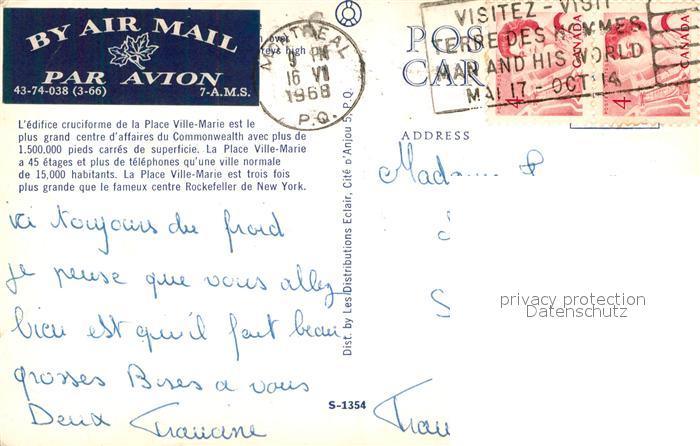 BY AIR MAIL
PAR AVION
43-74-038 (3-66) 7-A.M.S.
over
reys high
MONTREAL
PM
16 VII
1968
P.Q.
VISITEZ - VISIT
TERRE DES HOMMES
MAN AND HIS WORLD
MAI 17 - OCT 14
POS
CAR
CANADA
CANADA
4
4
L'édifice cruciforme de la Place Ville-Marie est le
plus grand centre d'affaires du Commonwealth avec plus de
1.500.000 pieds carrés de superficie. La Place Ville-Marie
a 45 étages et plus de téléphones qu'une ville normale
de 15,000 habitants. La Place Ville-Marie est trois fois
plus grande que le fameux centre Rockefeller de New York.
ici toujours du froid
je pense que vous allez
bien est qu'il fait beau
grosses Bises a vous
Deux Francine
Dist. by Les Distributions Eclair, Cité D'Anjou 5, P.Q.
S-1354
ADDRESS
Madam
S
Fran
privacy protection
Datenschutz